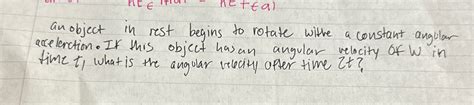 an object in rest begins to rotate withe a constant angular
acceleration. If this object has an angular velocity of W in
time t, what is the angular velocity after time 2t?